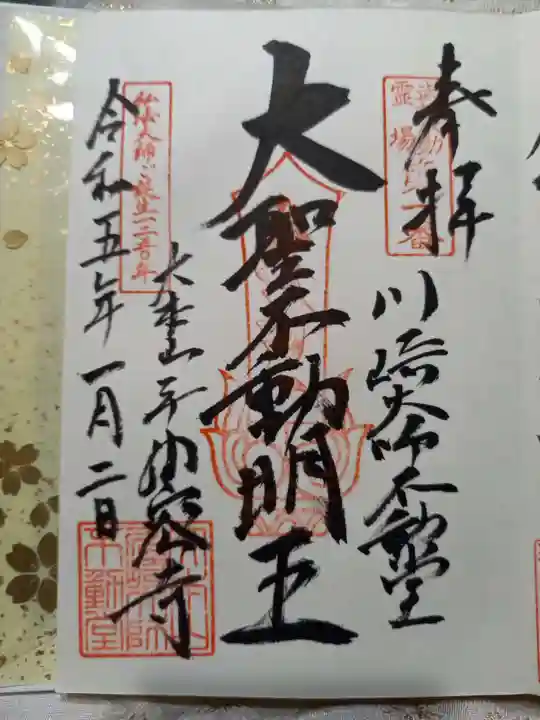 奉拝
川崎大師不動堂
大聖不動明王
大本山平間寺
弘法大師ご誕生一二五〇年
令和五年一月二日
霊場
不動堂